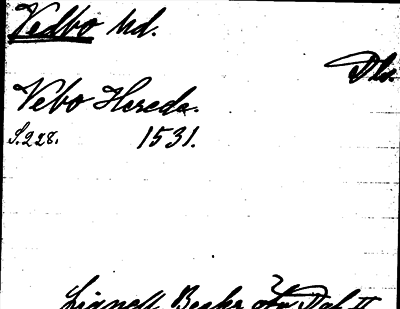 Vedbo hd.
Dls.
Vebo Hereda.
S. 228. 1531.
Lignell Beskr. öfv. Dal II